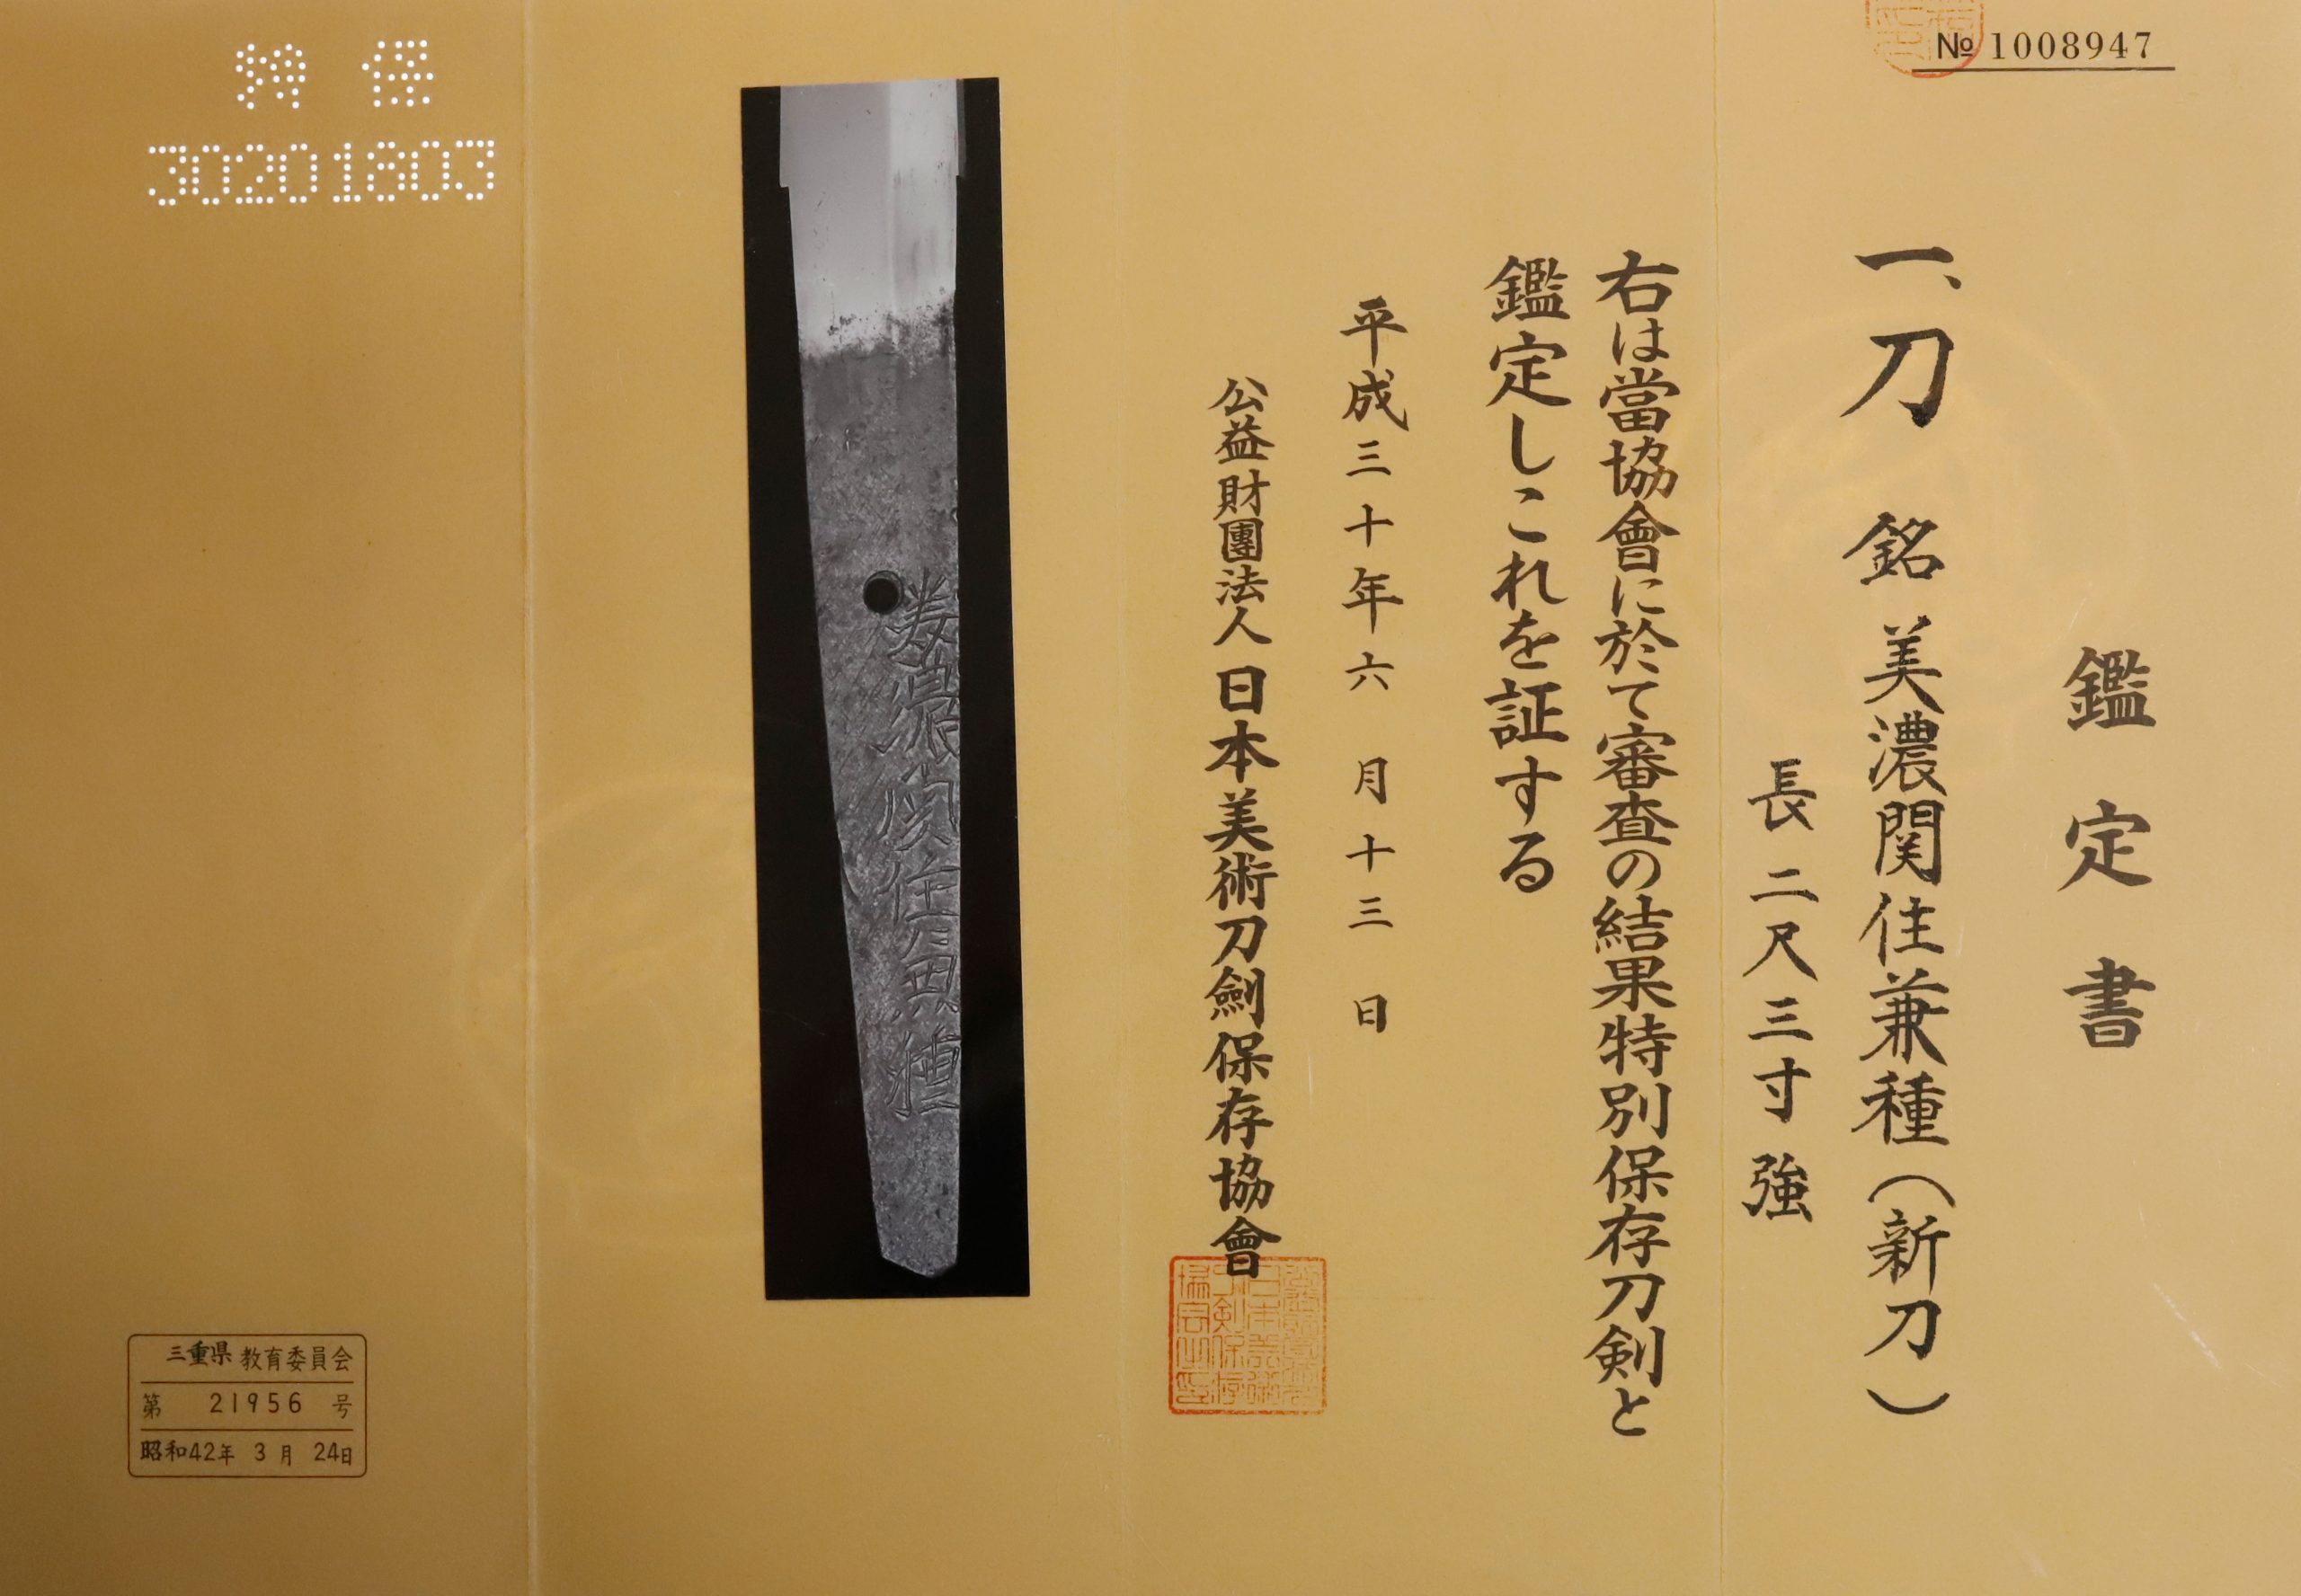 № 1008947
鑑定書
一、刀 銘 美濃関住兼種(新刀)
長 二尺三寸強
右は當協會に於て審査の結果特別保存刀剣と
鑑定しこれを証する
平成三十年六月十三日
公益財團法人 日本美術刀劍保存協會
美濃関住兼種
特保
30201803
三重県 教育委員会
第 21956 号
昭和42年 3月 24日